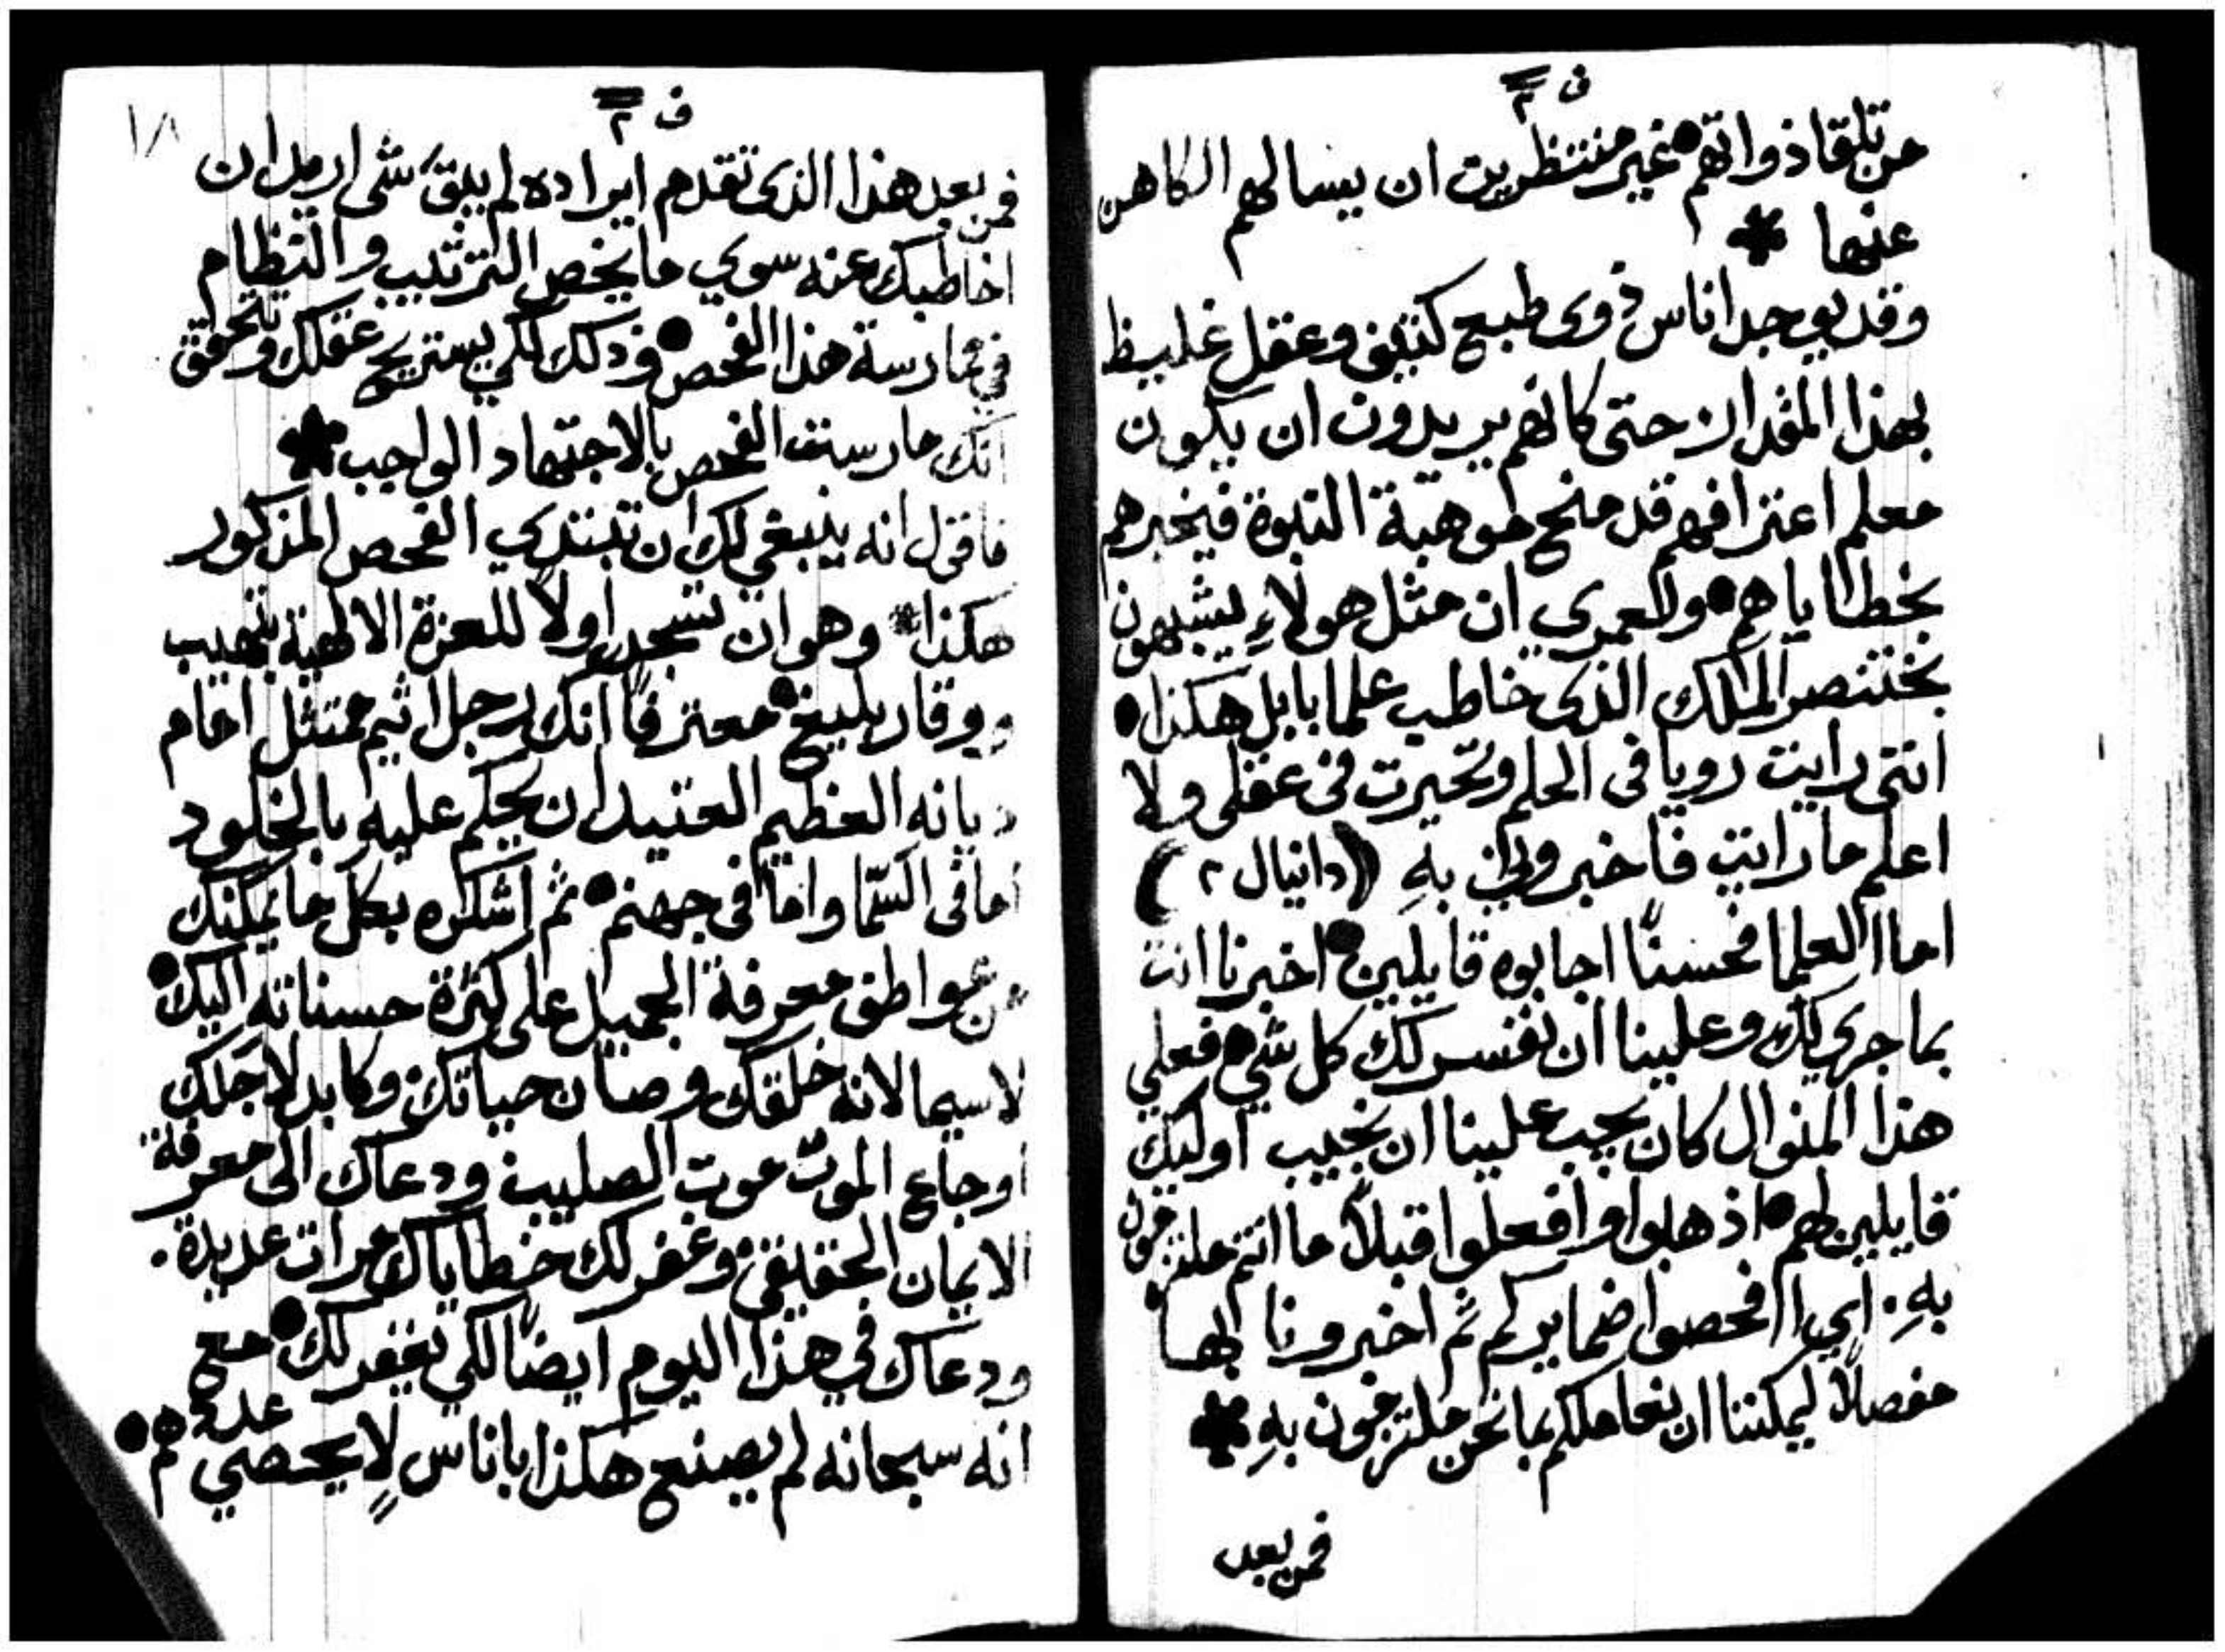 ف ٢
من تلقا ذواتهم • غير منتظرين ان يسالهم الكاهن
عنها *
وقد يوجد اناس ذوى طبع كثيف وعقل غليظ
بهذا المقدار حتى كانهم يريدون ان يكون
معلم اعترافهم قد منح موهبة النبوة فيخبرهم
بخطاياهم • ولعمري ان مثل هولاءِ يشبهون
بختنصر الملك الذى خاطب علما بابل هكذا •
اننى رايت رويا فى الحلم وتحيرت فى عقلى ولا
اعلم ما رايت فاخبرونى بهِ (دانيال ٢)
اما العلما فحسنًا اجابوه قايلين • اخبرنا انت
بما جرى لك وعلينا ان نفسر لك كل شي • فعلي
هذا المنوال كان يجب علينا ان نجيب اوليك
قايلين لهم • اذهبوا وافعلوا قبلاً ما انتم ملتزمون
بهِ • اي افحصوا ضمايركم ثم اخبرونا بها
مفصلاً ليمكننا ان نعاملكم بما نحن ملتزمون بهِ *
فمن بعد
١٨
ف ٢
فمن بعد هذا الذى تقدم ايراده لم يبقَ شى اريد ان
اخاطبك عنه سوي ما يخص الترتيب والنظام
في ممارسة هذا الفحص • وذلك لكي يستريح عقلك وتتحقق
انك مارست الفحص بالاجتهاد الواجب *
فاقول انه ينبغي لك ان تبتدي الفحص المذكور
هكذا * وهو ان تسجد اولاً للعزة الالهية بتهيب
ووقار بليغ • معترفًا انك رجل اثيم ممتثل امام
ديانه العظيم العتيد ان يحكم عليه بالخلود
اما فى السّما واما فى جهنم • ثم اشكره بكل ما يمكنك
من عواطف معرفة الجميل على كثرة حسناته اليك •
لاسيما لانه خلقك وصان حياتك وكابد لاجلك
اوجاع الموت موت الصليب ودعاك الى معرفة
الايمان الحقيقى وغفر لك خطاياك مرات عديدة •
ودعاك في هذا اليوم ايضًا لكي يغفر لك • مع
انه سبحانه لم يصنع هكذا باناسٍ لا يحصي عددهم •